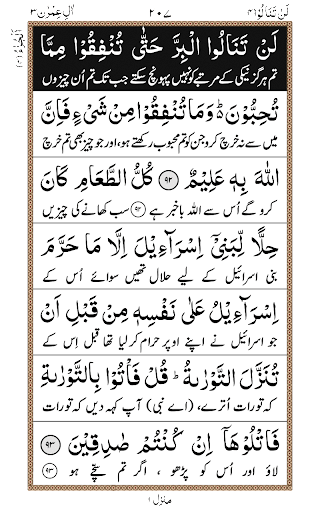 لَنْ تَنَالُوْا ۴ ۲۰۷ اٰلِ عِمْرٰن ۳
لَنْ تَنَالُوا الْبِرَّ حَتّٰى تُنْفِقُوْا مِمَّا
تم ہرگز نیکی کے مرتبے کو نہیں پہونچ سکتے جب تک تم اُن چیزوں
تُحِبُّوْنَ ؕ وَمَا تُنْفِقُوْا مِنْ شَیْءٍ فَاِنَّ
میں سے نہ خرچ کرو جن کو تم محبوب رکھتے ہو، اور جو چیز بھی تم خرچ
اللّٰهَ بِهٖ عَلِیْمٌ ﴿۹۲﴾ كُلُّ الطَّعَامِ كَانَ
کرو گے اُس سے اللہ باخبر ہے ﴿۹۲﴾ سب کھانے کی چیزیں
حِلًّا لِّبَنِیْۤ اِسْرَآءِیْلَ اِلَّا مَا حَرَّمَ
بنی اسرائیل کے لیے حلال تھیں سوائے اُس کے
اِسْرَآءِیْلُ عَلٰی نَفْسِهٖ مِنْ قَبْلِ اَنْ
جو اسرائیل نے اپنے اوپر حرام کر لیا تھا قبل اِس کے
تُنَزَّلَ التَّوْرٰىةُ ؕ قُلْ فَاْتُوْا بِالتَّوْرٰىةِ
کہ تورات اُترے، (اے نبی) آپ کہہ دیں کہ تورات
فَاتْلُوْهَاۤ اِنْ كُنْتُمْ صٰدِقِیْنَ ﴿۹۳﴾
لاؤ اور اُس کو پڑھو ، اگر تم سچّے ہو ﴿۹۳﴾
منزل ۱